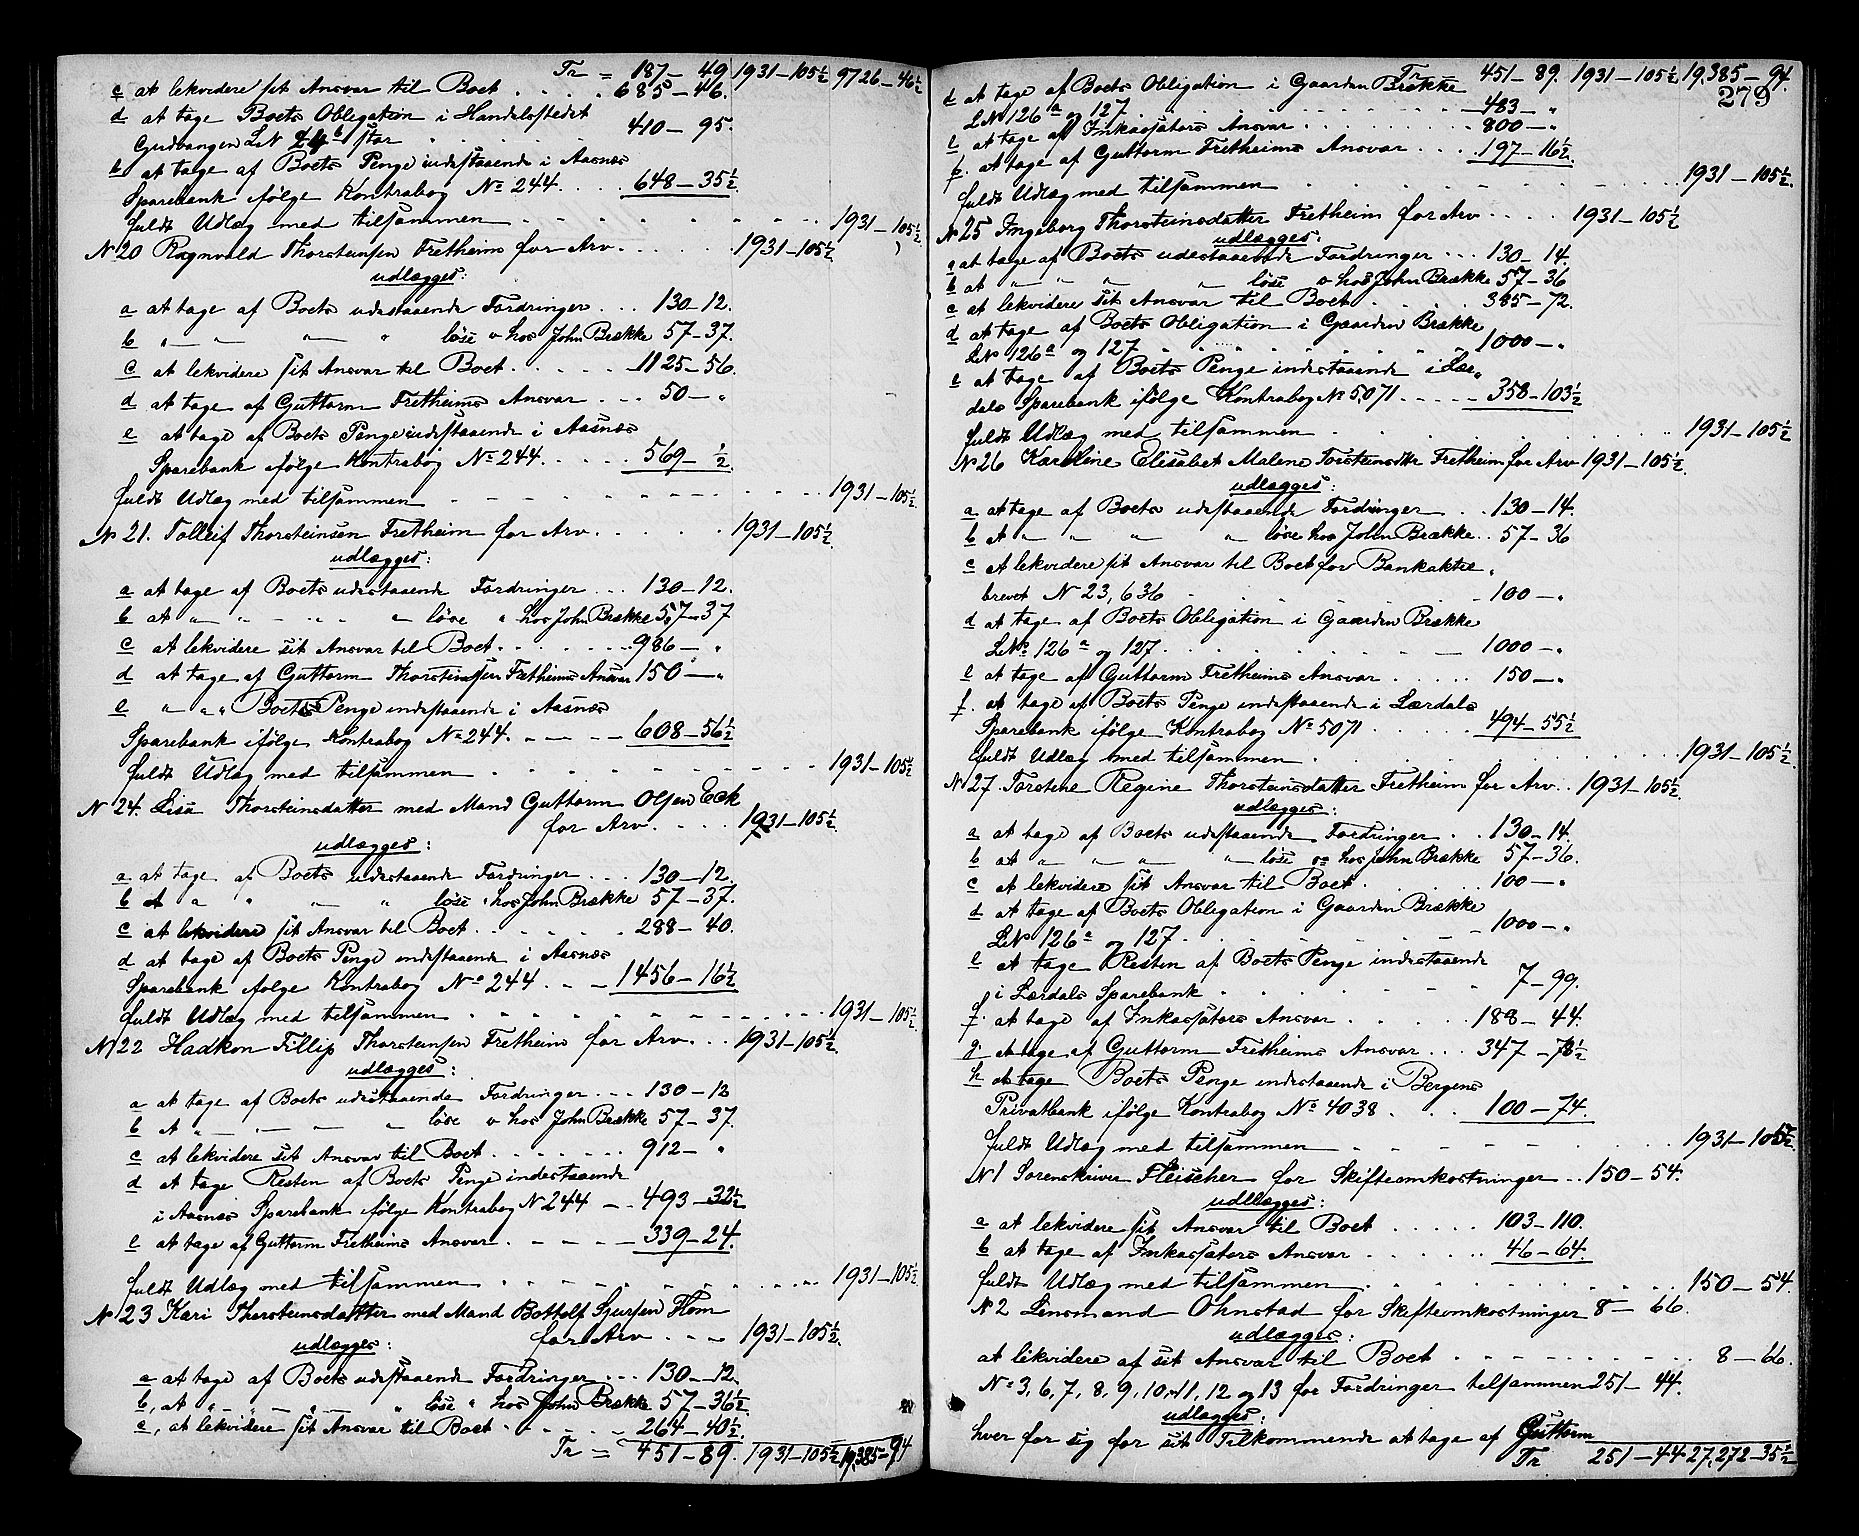 Tr = 187 – 49 1931 – 105½ 9726 – 46½
c at lekvidere sit Ansvar til Boet . . . . 685 – 46.
d at tage Boets Obligation i Handelsstedet
Gudvangen LN 24 b stor . . . 410 – 95.
e at tage af Boets Penge indestaaende i Aasnæs
Sparebank ifølge Kontrabog No 244. . . . 648 – 35½
fuldt Udlæg med tilsammen . . . 1931 – 105½
N 20 Ragnvald Thorsteinsen Fretheim for Arv . . . 1931 – 105½
udlægges:
a at tage af Boets udestaaende Fordringer . . . 130 – 12.
b " — " — " — " løse " hos John Brække 57 – 37.
c at lekvidere sit Ansvar til Boet . . . . 1125 – 56.
d at tage af Guttorm Fretheims Ansvar . . . 50 – "
e at tage af Boets Penge indestaaende i Aasnæs
Sparebank ifølge Kontrabog No 244. . . . 569 – ½
fuldt Udlæg med tilsammen . . . 1931 – 105½
N 21. Tolleif Thorsteinsen Fretheim for Arv . . . 1931 – 105½
udlægges:
a at tage af Boets udestaaende Fordringer . . . 130 – 12.
b at " — " — " " — løse " hos John Brække 57 – 37
c at lekvidere sit Ansvar til Boet . . . . 986 – "
d at tage af Guttorm Thorsteinsen Fretheims Ansvar 150 – "
e " " " Boets Penge indestaaende i Aasnæs
Sparebank ifølge Kontrabog No 244. . . . 608 – 56½
fuldt Udlæg med tilsammen . . . 1931 – 105½
N 24. Lisa Thorsteinsdatter med Mand Guttorm Olsen Eck
for Arv . . . 1931 – 105½
udlægges:
a at tage af Boets udestaaende Fordringer . . . 130 – 12.
b at " " — " løse " hos John Brække 57 – 37.
c at lekvidere sit Ansvar til Boet . . . 288 – 40.
d at tage af Boets Penge indestaaende i Aasnæs
Sparebank ifølge Kontrabog No 244 . . . 1456 – 16½
fuldt Udlæg med tilsammen . . . 1931 – 105½
N 22 Haakon Fillip Thorsteinsen Fretheim for Arv . . . 1931 – 105½
udlægges:
a at tage af Boets udestaaende Fordringer . . . 130 – 12
b at " — " — " løse " hos John Brække 57 – 37.
c at lekvidere sit Ansvar til Boet . . . 912 – "
d at tage Resten af Boets Penge indestaaende
i Aasnæs Sparebank ifølge Kontrabog N 244 – . . 493 – 32½
e at tage af Guttorm Fretheims Ansvar . . . 339 – 24.
fuldt Udlæg med tilsammen . . . 1931 – 105½
N 23 Kari Thorsteinsdatter med Mand Bottolf Sjursen Hom
for Arv . . . 1931 – 105½
udlægges:
a at tage af Boets udestaaende Fordringer . . . 130 – 12.
b, at " — " — " løse " hos John Brække 57 – 36½
c, at lekvidere sit Ansvar til Boet . . . 264 – 40½
Tr = 451 – 89. 1931 – 105½ 19,385 – 94
279
Tr 451 – 89. 1931 – 105½ 19,385 – 94.
d at tage af Boets Obligation i Gaarden Brække
LN 126 a og 127 . . . 483 – "
e at tage af Inkassators Ansvar . . . 800 – "
f. at tage af Guttorm Fretheims Ansvar . . . 197 – 16½
fuldt Udlæg med tilsammen . . . 1931 – 105½
N 25 Ingeborg Thorsteinsdatter Fretheim for Arv . . . 1931 – 105½
udlægges:
a at tage af Boets udestaaende Fordringer . . . 130 – 14.
b at " " " " løse " hos John Brække 57 – 36
c at lekvidere sit Ansvar til Boet . . . 385 – 72.
d at tage af Boets Obligation i Gaarden Brække
LN 126 a og 127 . . . 1000 – "
e at tage af Boets Penge indestaaende i Lær-
dals Sparebank ifølge Kontrabog No 5071 . . . 358 – 103½
fuldt Udlæg med tilsammen . . . 1931 – 105½
N 26 Karoline Elisabet Malene Torsteinsdtr Fretheim for Arv 1931 – 105½
udlægges:
a at tage af Boets udestaaende Fordringer . . 130 – 14.
b at " " " " løse hos John Brække . . 57 – 36
c at lekvidere sit Ansvar til Boet for Bankaktie-
brevet N 23,636 . . . 100 – "
d at tage af Boets Obligation i Gaarden Brække
LNo 126 a og 127 . . . 1000 – "
e at tage af Guttorm Fretheims Ansvar . . . 150 – "
f. at tage af Boets Penge indestaaende i Lærdals
Sparebank ifølge Kontrabog No 5071 . . . 494 – 55½
fuldt Udlæg med tilsammen . . . 1931 – 105½
N 27 Torstine Regine Thorsteinsdatter Fretheim for Arv . . 1931 – 105½
udlægges:
a at tage af Boets udestaaende Fordringer . . 130 – 14.
b at " " " " løse " hos John Brække 57 – 36.
c at lekvidere sit Ansvar til Boet . . . 100 – "
d at tage af Boets Obligation i Gaarden Brække
LN 126 a og 127 . . . 1000 – "
e at tage Resten af Boets Penge indestaaende
i Lærdals Sparebank . . . 7 – 99.
f. at tage af Inkassators Ansvar . . . 188 – 44.
g at tage af Guttorm Fretheims Ansvar . . . 347 – 78½
h at tage Boets Penge indestaaende i Bergens
Privatbank ifølge Kontrabog No 4038 . . . 100 – 74.
fuldt Udlæg med tilsammen . . . 1931 – 105½
N 1 Sorenskriver Fleischer for Skifteomkostninger . . 150 – 54.
udlægges:
a at lekvidere sit Ansvar til Boet . . . 103 – 110.
b at tage af Inkassators Ansvar . . . 46 – 64.
fuldt Udlæg med tilsammen . . . 150 – 54.
N 2 Lensmand Ohnstad for Skifteomkostninger 8 – 66.
udlægges:
at likvidere af sit Ansvar til Boet . . . 8 – 66.
No 3, 6, 7, 8, 9, 10, 11, 12 og 13 for Fordringer tilsammen 251 – 44.
udlægges:
hver for sig for sit Tilkommende at tage af Guttorm
Tr 251 – 44 27,272 – 35½